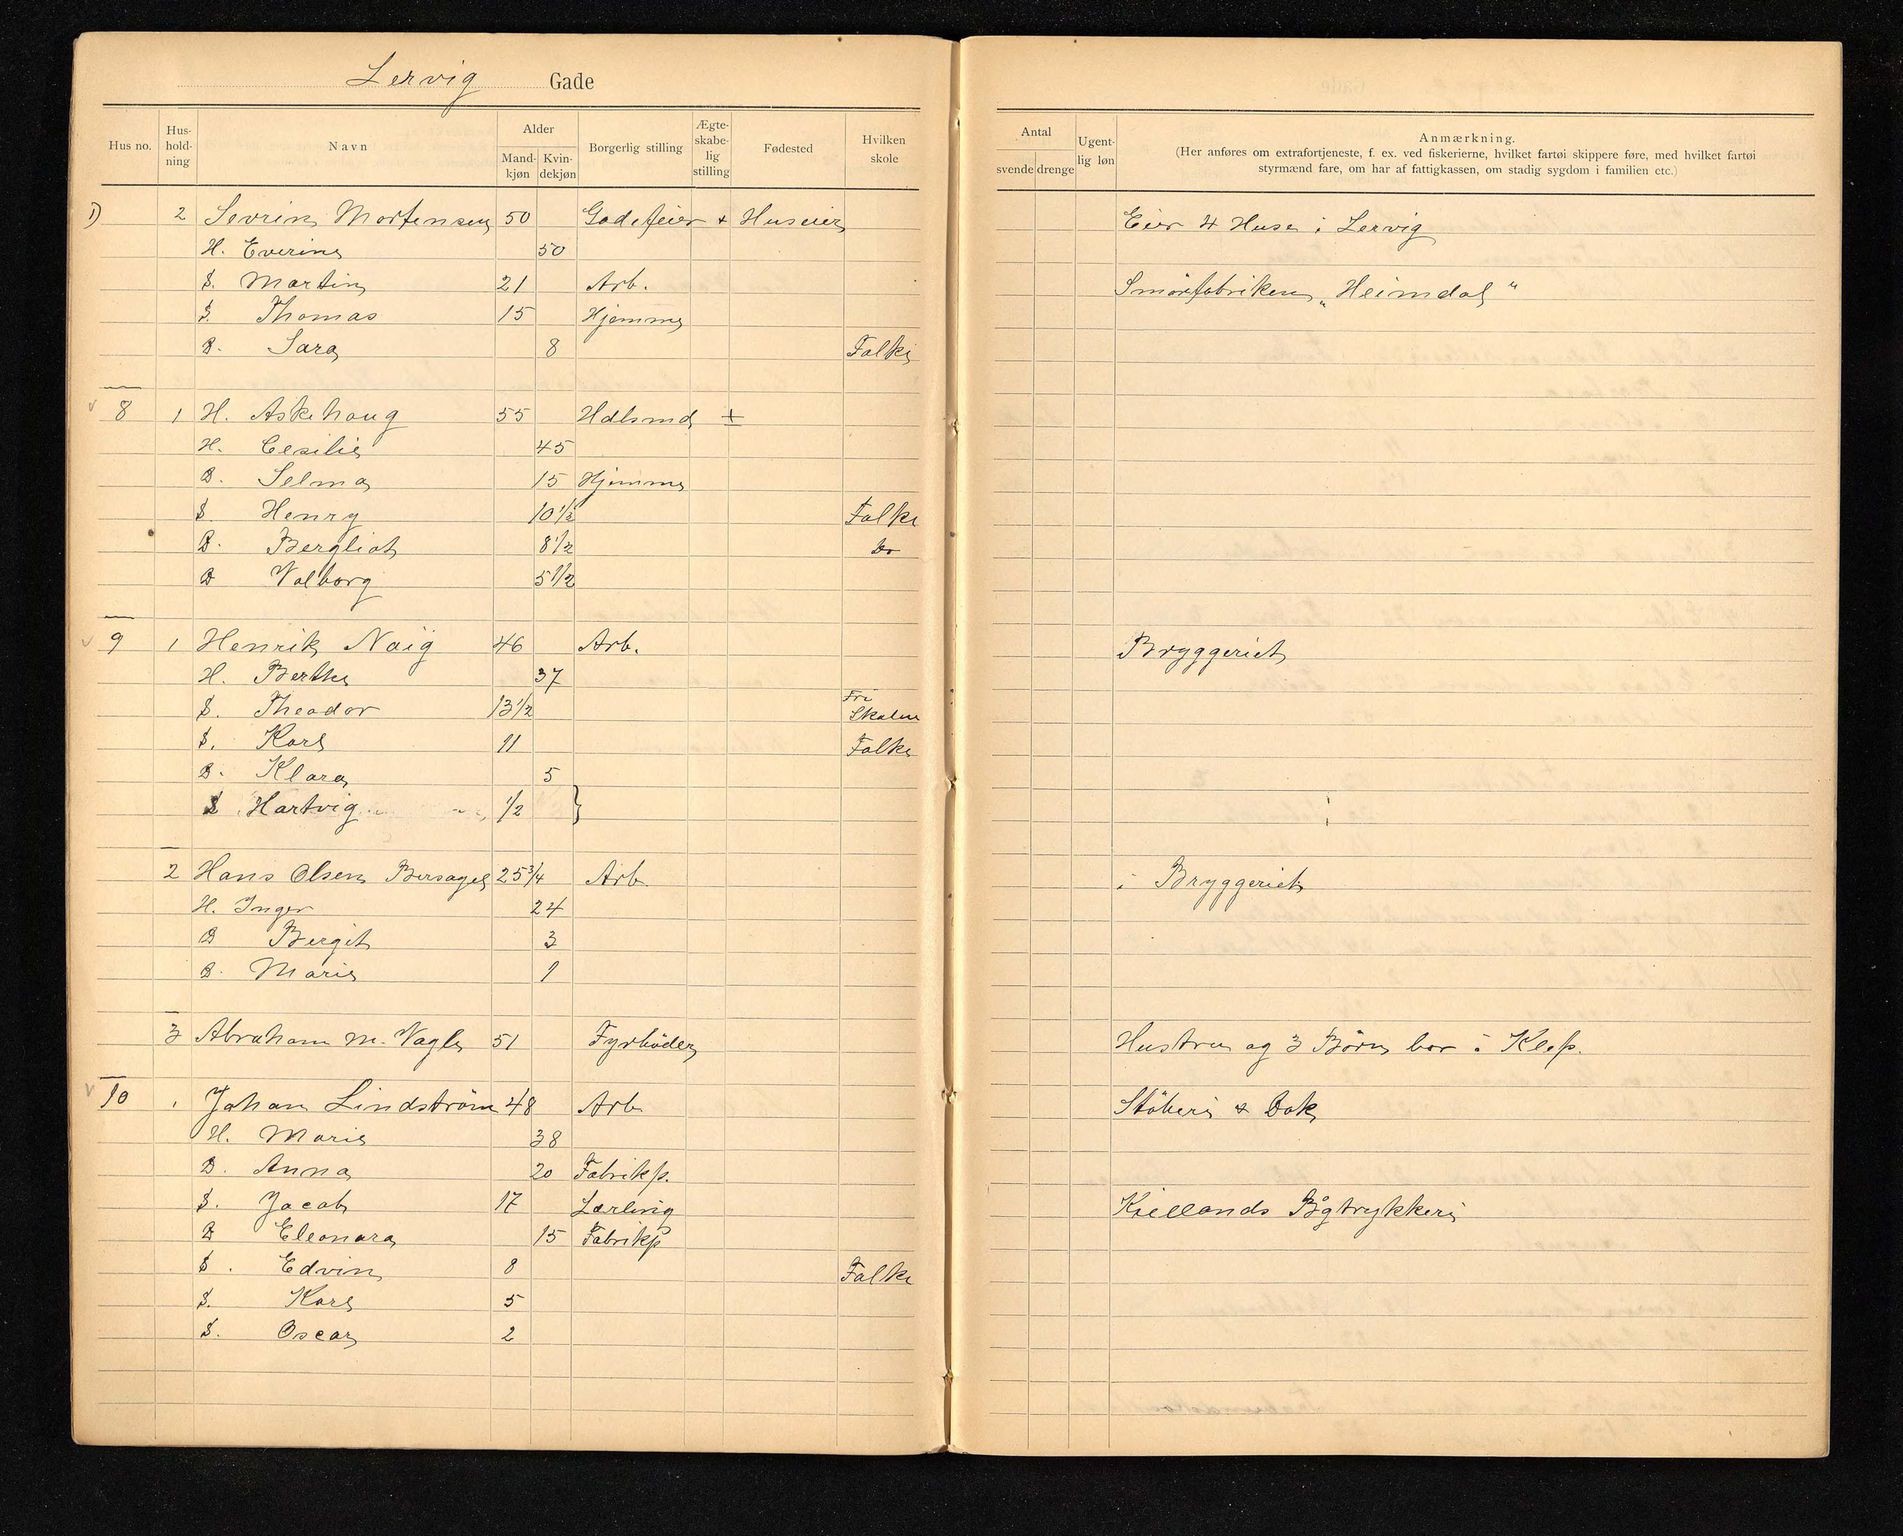 Lervig Gade
Hus no. Hus-hold-ning Navn Alder Mand-kjøn Kvin-dekjøn Borgerlig stilling Ægte-skabe-lig stilling Fødested Hvilken skole
Antal svende drenge Ugent-lig løn Anmærkning.
(Her anføres om extrafortjeneste, f. ex. ved fiskerierne, hvilket fartøi skippere føre, med hvilket fartøi
styrmænd fare, om har af fattigkassen, om stadig sygdom i familien etc.)
2 Sevrin Mortensen 50 Gadefeier + Huseier Eier 4 Huse i Lervig
H. Everine 50
S. Martin 21 Arb. Smörfabriken „Heimdal"
S. Thomas 15 Hjemme
D. Sara 8 Falke
8 1 H. Askehaug 55 Hdlsmd ±
H. Cesilie 45
D. Selma 15 Hjemme
S. Henry 10 1/2 Falke
D. Bergliot 8 1/2 Do
D Valborg 5 1/2
9 1 Henrik Naig 46 Arb. Bryggeriet
H. Berthe 37
S. Theodor 13 1/2 Fri Skolen
S. Karl 11 Falke
D. Klara 5
S Hartvig 1/2 }
2 Hans Olsen Bersagel 25 3/4 Arb i Bryggeriet
H. Inger 24
D Bergit 3
D. Marie 1
3 Abraham M. Vagle 51 Fyrböder Hustru og 3 Börn bor i Klep.
10 1 Johan Lindström 48 Arb Stöberi & Dok
H. Marie 38
D. Anna 20 Fabrikp.
S. Jacob 17 Lærling Kiellands Bgtrykkeri
D Eleonora 15 Fabrikp
S. Edvin 8 Falke
S. Karl 5
S. Oscar 2